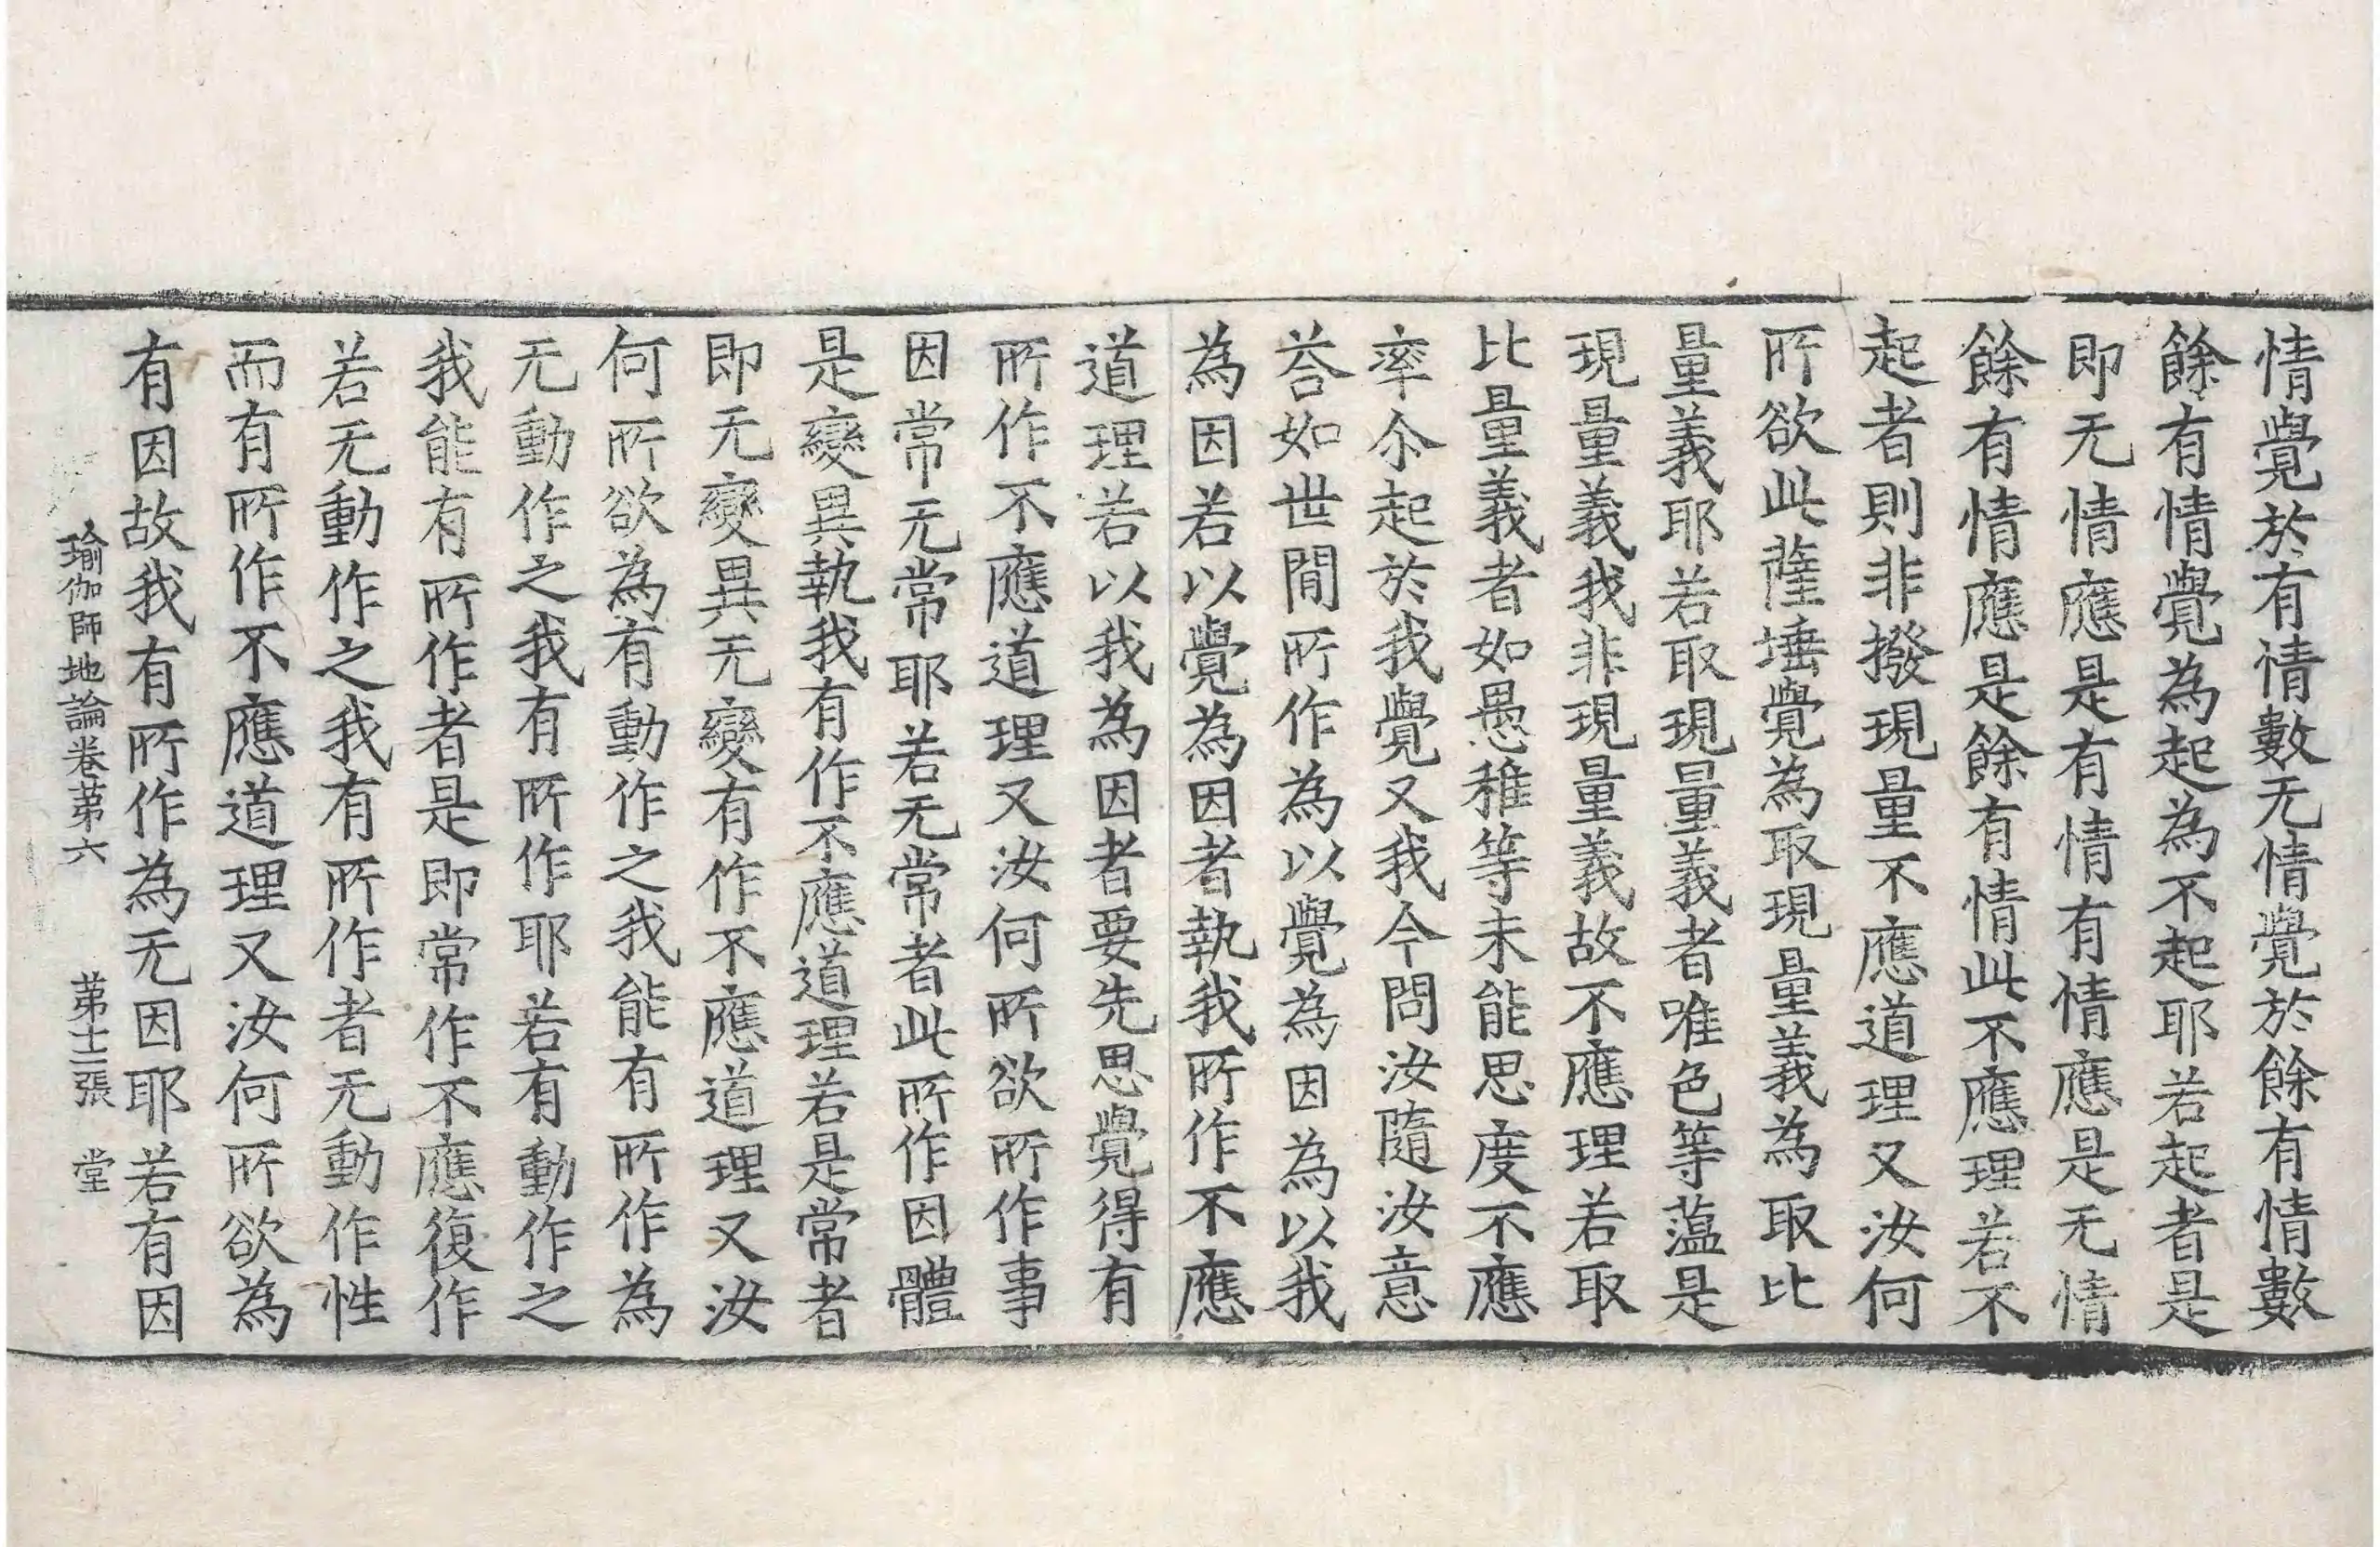 情覺於有情數无情覺於餘有情數
餘有情覺為起為不起耶若起者是
即无情應是有情有情應是无情
餘有情應是餘有情此不應理若不
起者則非撥現量不應道理又汝何
所欲此薩埵覺為取現量義為取比
量義耶若取現量義者唯色等薀是
現量義我非現量義故不應理若取
比量義者如愚稚等未能思度不應
率尒起於我覺又我今問汝隨汝意
荅如世間所作為以覺為因為以我
為因若以覺為因者執我所作不應
道理若以我為因者要先思覺得有
所作不應道理又汝何所欲所作事
因常无常耶若无常者此所作因體
是變異執我有作不應道理若是常者
即无變異无變有作不應道理又汝
何所欲為有動作之我能有所作為
无動作之我有所作耶若有動作之
我能有所作者是即常作不應復作
若无動作之我有所作者无動作性
而有所作不應道理又汝何所欲為
有因故我有所作為无因耶若有因
瑜伽師地論卷苐六 苐十三張 堂